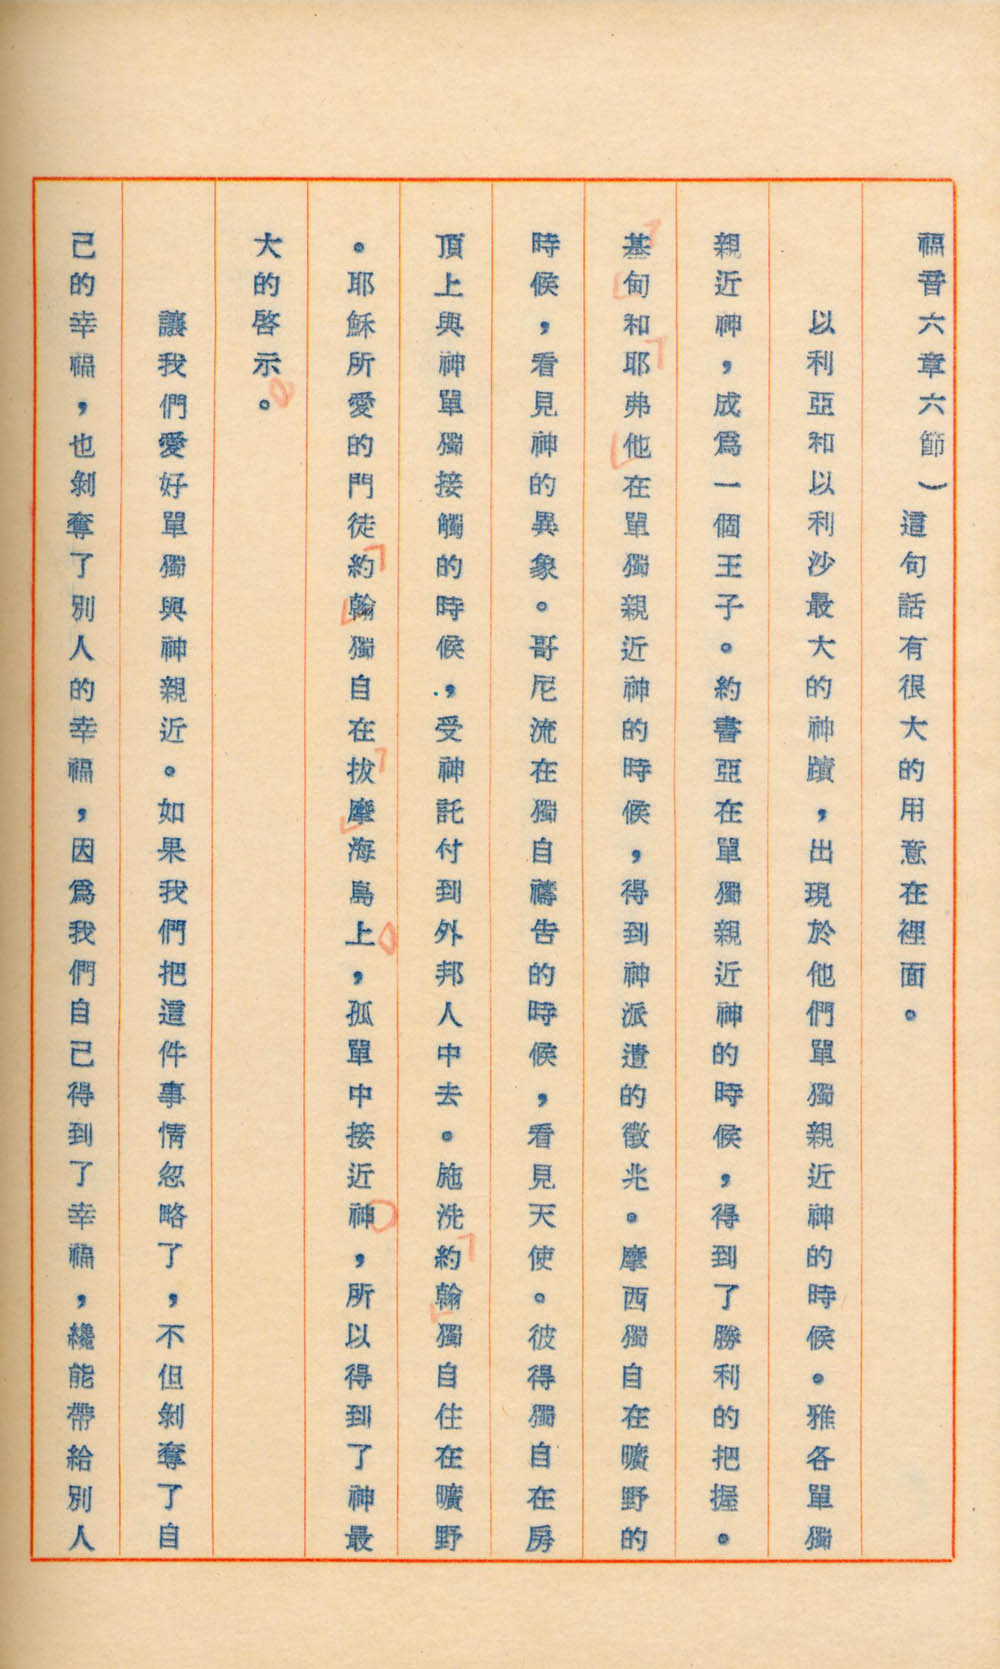 福音六章六節）這句話有很大的用意在裡面。
以利亞和以利沙最大的神蹟，出現於他們單獨親近神的時候。雅各單獨
親近神，成爲一個王子。約書亞在單獨親近神的時候，得到了勝利的把握。
基甸和耶弗他在單獨親近神的時候，得到神派遣的徵兆。摩西獨自在曠野的
時候，看見神的異象。哥尼流在獨自禱告的時候，看見天使。彼得獨自在房
頂上與神單獨接觸的時候，受神託付到外邦人中去。施洗約翰獨自住在曠野
。耶穌所愛的門徒約翰獨自在拔摩海島上，孤單中接近神，所以得到了神最
大的啓示。
讓我們愛好單獨與神親近。如果我們把這件事情忽略了，不但剝奪了自
己的幸福，也剝奪了別人的幸福，因爲我們自己得到了幸福，纔能帶給別人